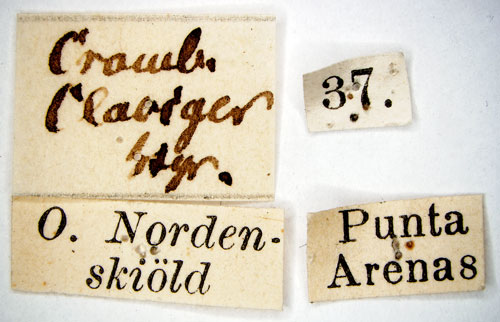 Cramb.
Claviger
Stgr.
37.
O. Norden-
skiöld
Punta
Arenas